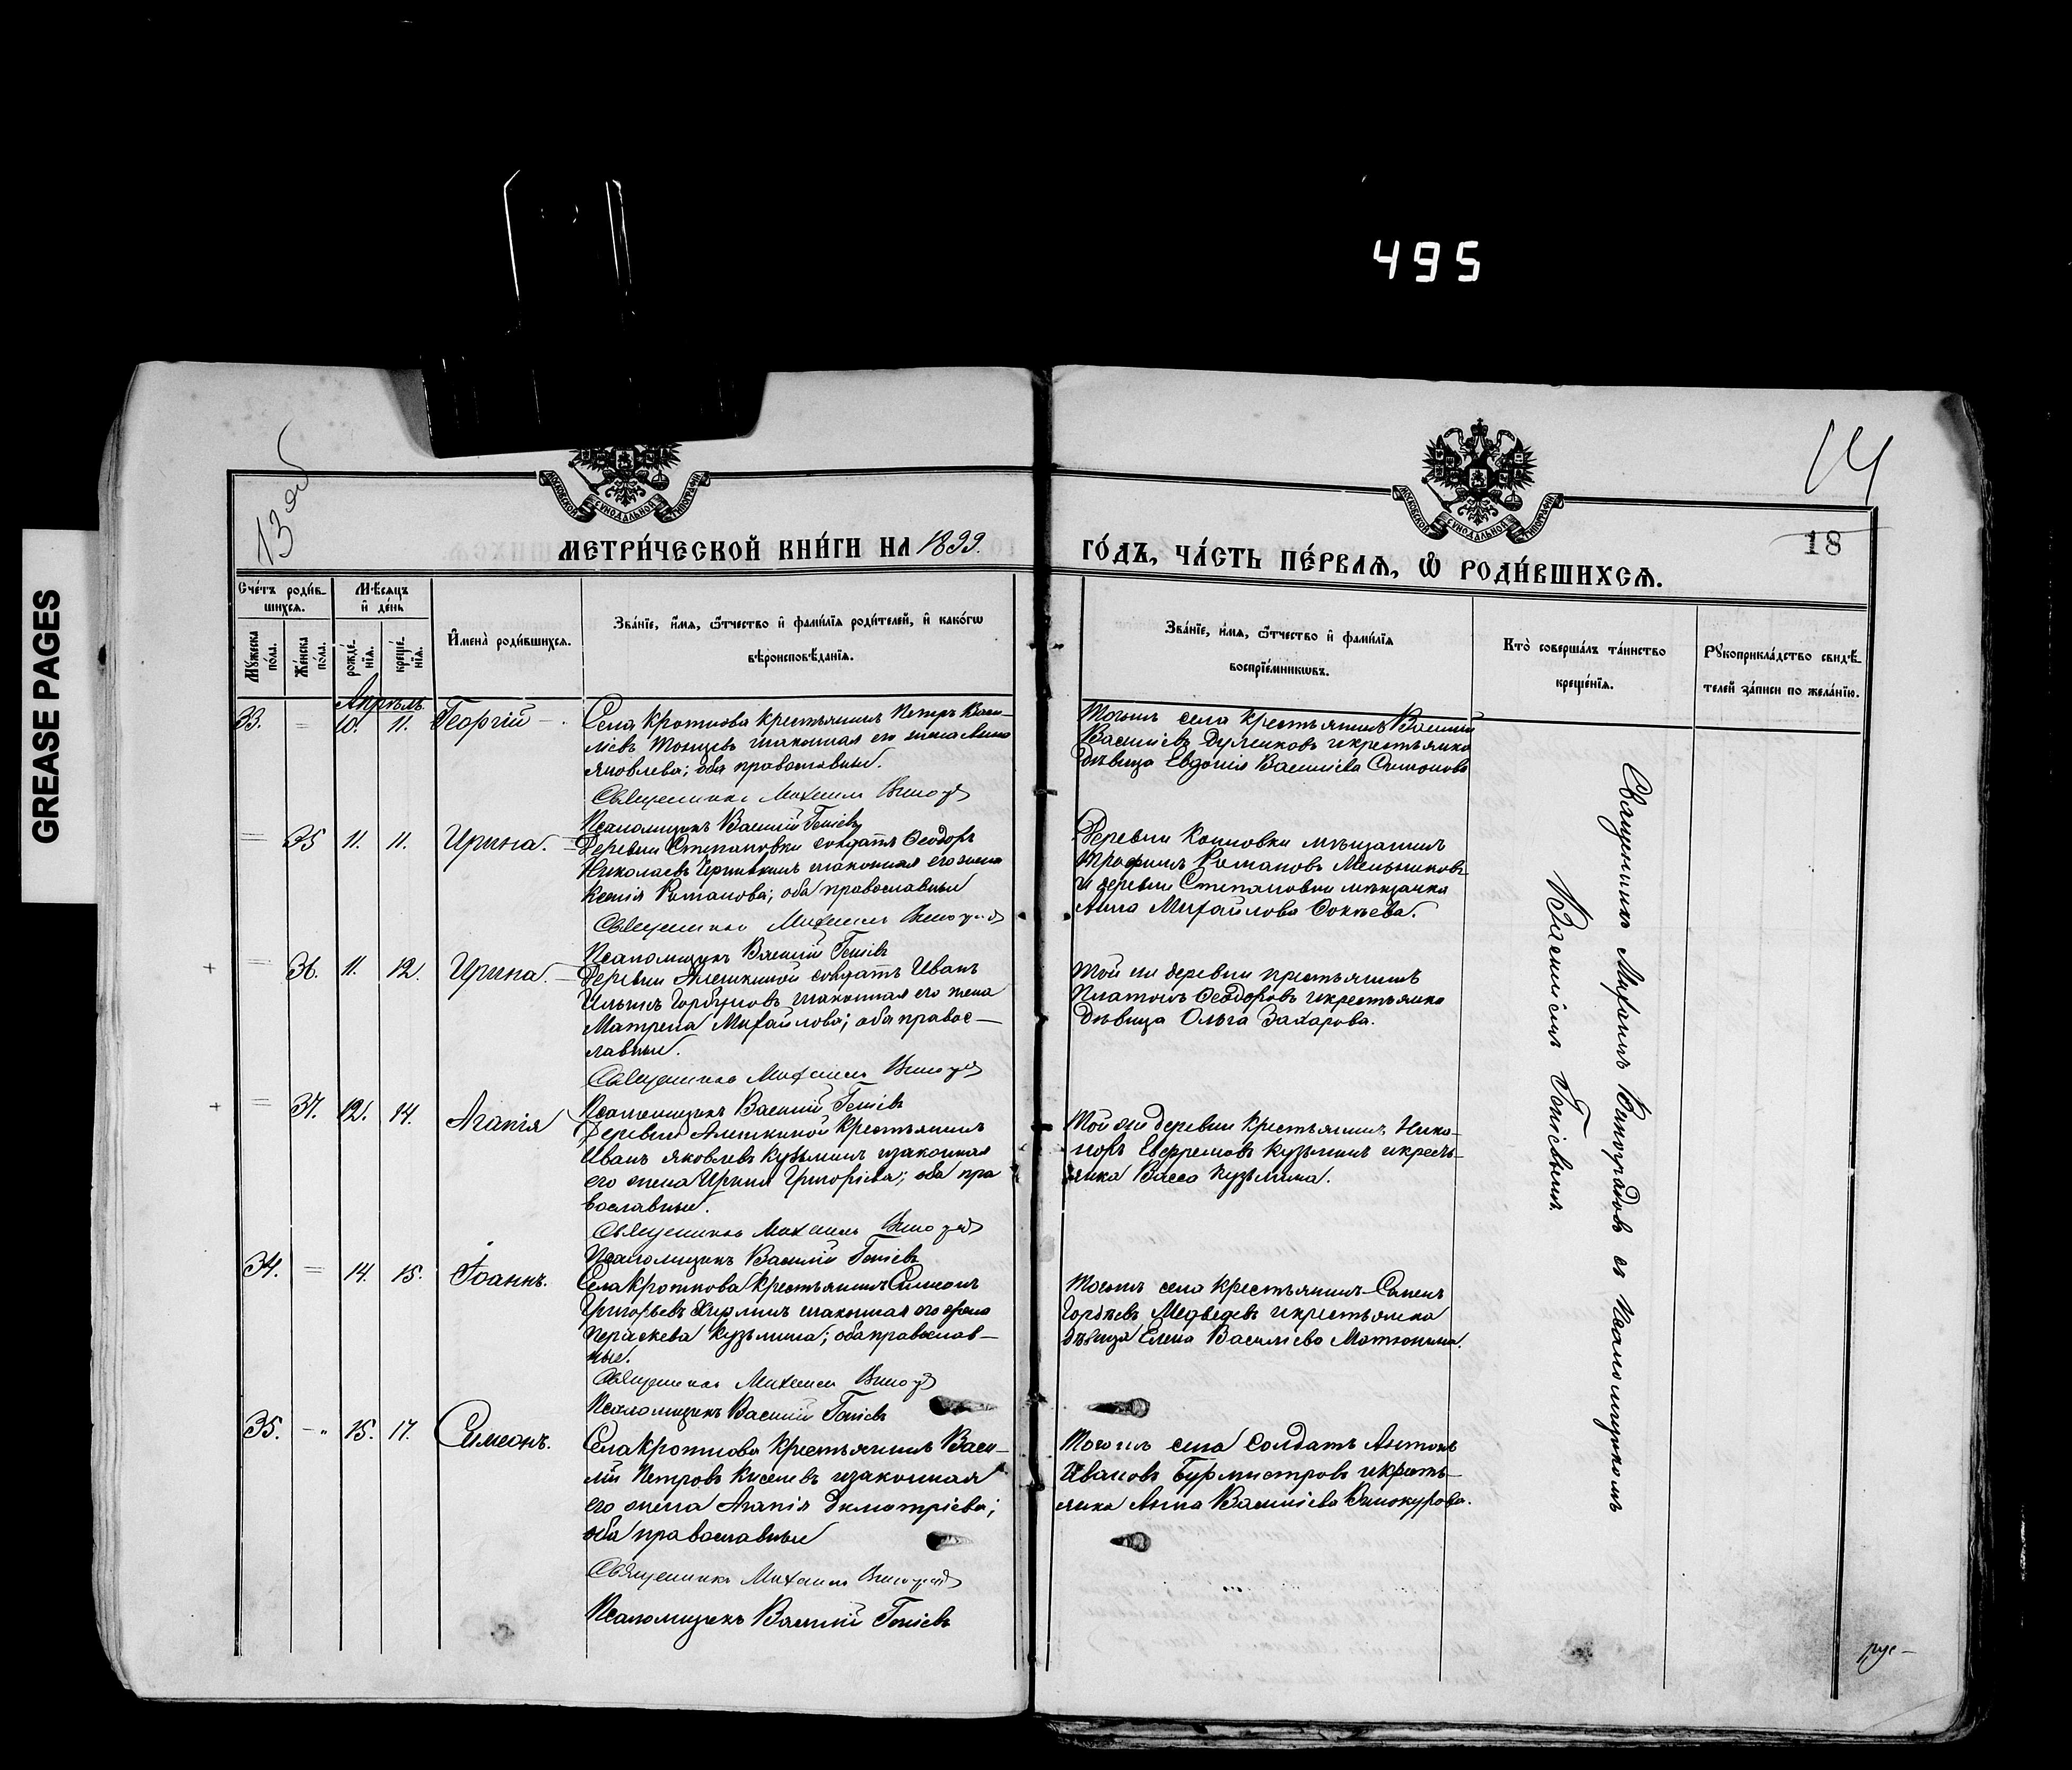 495
GREASE PAGES
13 об
14
18
МОСКОВСКОЙ СѴНОДАЛЬНОЙ ТИПОГРАФІИ
МОСКОВСКОЙ СѴНОДАЛЬНОЙ ТИПОГРАФІИ
МЕТРИ́ЧЕСКОЙ КНИ́ГИ НА 1899.
ГО́ДЪ, ЧА́СТЬ ПЕ́РВАѦ, Ѽ РОДИ́ВШИХСѦ.
Сче́тъ роди́в-
шихсѧ.
Мѣ́сѧцъ
и҆ де́нь
Мꙋ́жеска
по́ла.
Же́нска
по́ла.
рожде́-
нїѧ.
креще́-
нїѧ.
И҆мена̀ роди́вшихсѧ.
Зва́нїе, и҆́мѧ, ѻ҆́тчество и҆ фами́лїѧ роди́телей, и҆ како́гѡ
вѣроисповѣ́данїѧ.
Зва́нїе, и҆́мѧ, ѻ҆́тчество и҆ фами́лїѧ
воспрїе́мникѡвъ.
Кто̀ соверша́лъ та́инство
креще́нїѧ.
Рꙋкоприкла́дство свидѣ́-
телей за́писи по жела́нїю.
Апрѣль
33. = 10. 11. Георгій
Села Кроткова крестьянинъ Петръ Васи-
ліевъ и законная его жена Анна
Яковлева; оба православные.
Священникъ Михаилъ Виноград
Псаломщикъ Василій Геніевъ
Тогожъ села крестьянинъ Василій
Василіевъ и крестьянка
дѣвица Евдокія Василіева Симонова
= 35 11. 11. Ирина.
Деревни Степановки солдатъ Ѳеодоръ
Николаевъ и законная его жена
Ксенія Романова; оба православные
Священникъ Михаилъ Виноград
Псаломщикъ Василій Геніевъ
Деревни мѣщанинъ
Трофимъ Романовъ Меньшиковъ
и деревни Степановки мѣщанка
Анна Михайлова Фокѣева.
= 36. 11. 12. Ирина.
Деревни Алешкиной солдатъ Иванъ
Ильинъ Горбуновъ и законная его жена
Матрена Михайлова; оба правос-
лавные.
Священникъ Михаилъ Виноград
Псаломщикъ Василій Геніевъ
Той же деревни крестьянинъ
Платонъ Ѳеодоровъ и крестьянка
дѣвица Ольга Захарова.
= 37. 12. 14. Агапія
Деревни Алешкиной крестьянинъ
Иванъ Яковлевъ Кузьминъ и законная
его жена Ирина Григоріева; оба пра
вославные.
Священникъ Михаилъ Виноград
Псаломщикъ Василій Геніевъ
Той же деревни крестьянинъ Ника-
норъ Евфремовъ Кузьминъ и кресть-
янка Васса Кузьмина.
34. = 14. 15. Іоаннъ.
Села Кроткова крестьянинъ Симеонъ
Григорьевъ и законная его жена
Параскева Кузьмина; оба православ-
ные.
Священникъ Михаилъ Виноград
Псаломщикъ Василій Геніевъ
Тогожъ села крестьянинъ Семенъ
Медведевъ и крестьянка
дѣвица Елена Василіева Матюнина.
35. - 15. 17. Симеонъ.
Села Кроткова крестьянинъ Васи-
лій Петровъ Киселевъ и законная
его жена Агапія Димитріева;
оба православные
Священникъ Михаилъ Виноград
Псаломщикъ Василій Геніевъ
Тогожъ села солдатъ Антонъ
Ивановъ Бурмистровъ и кресть-
янка Анна Василіева Винокурова.
Священникъ Михаилъ Виноградовъ съ псаломщикомъ
Василіемъ Геніевымъ.